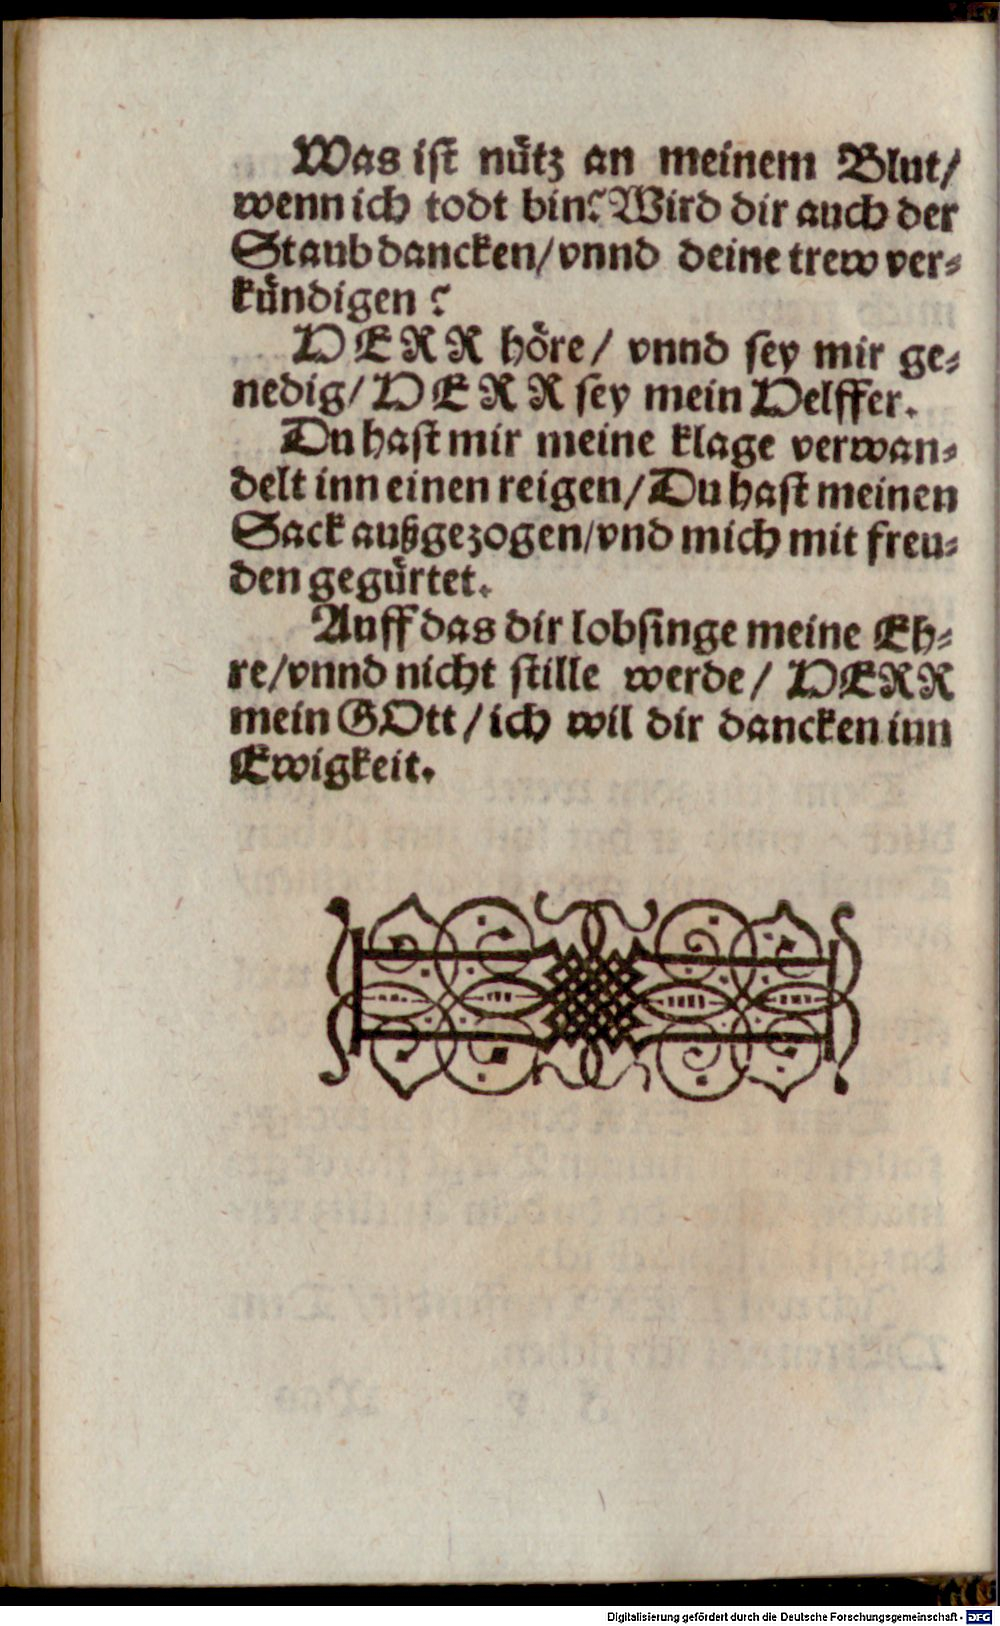 Was ist nuͤtz an meinem Blut/
wenn ich todt bin? Wird dir auch der
Staub dancken/ vnnd deine trew ver-
kuͤndigen?
HERR hoͤre/ vnnd sey mir ge-
nedig/ HERR sey mein Helffer.
Du hast mir meine klage verwan-
delt inn einen reigen/ Du hast meinen
Sack außgezogen/ vnd mich mit freu-
den geguͤrtet.
Auff das dir lobsinge meine Eh-
re/ vnnd nicht stille werde/ HERR
mein GOtt/ ich wil dir dancken inn
Ewigkeit.
Digitalisierung gefördert durch die Deutsche Forschungsgemeinschaft - DFG